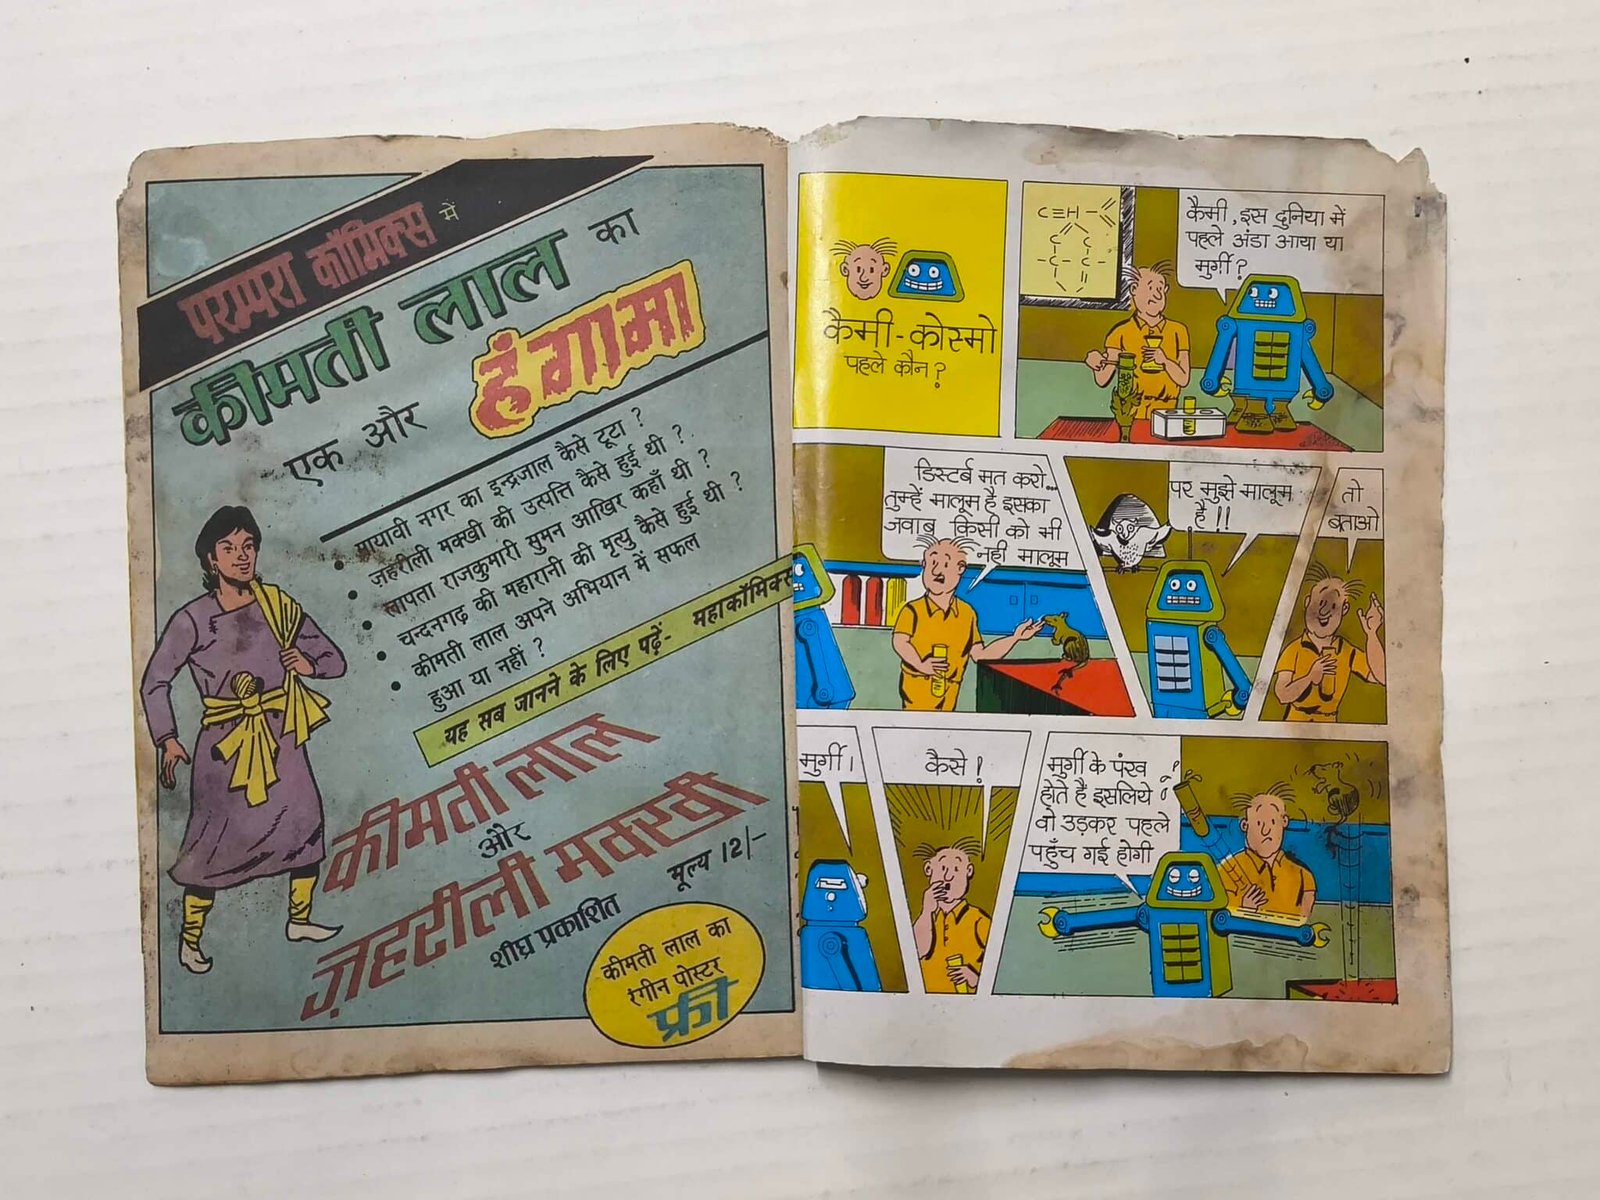 परम्परा कॉमिक्स में
कीमती लाल का
एक और हंगामा
मायावी नगर का इन्द्रजाल कैसे टूटा ?
• जहरीली मक्खी की उत्पत्ति कैसे हुई थी ?
• लापता राजकुमारी सुमन आखिर कहाँ थी ?
• चन्दनगढ़ की महारानी की मृत्यु कैसे हुई थी ?
• कीमती लाल अपने अभियान में सफल
हुआ या नहीं ?
यह सब जानने के लिए पढ़ें- महाकॉमिक्स
कीमती लाल
और
ज़हरीली मक्खी
शीघ्र प्रकाशित
मूल्य 12/-
कीमती लाल का
रंगीन पोस्टर
फ्री
कैमी-कोस्मो
पहले कौन ?
C≡H
कैमी, इस दुनिया में
पहले अंडा आया या
मुर्गी ?
डिस्टर्ब मत करो...
तुम्हें मालूम है इसका
जवाब किसी को भी
नही मालूम
पर मुझे मालूम
है !!
तो
बताओ
मुर्गी।
कैसे !
मुर्गी के पंख
होते हैं इसलिये
वो उड़कर पहले
पहुँच गई होगी